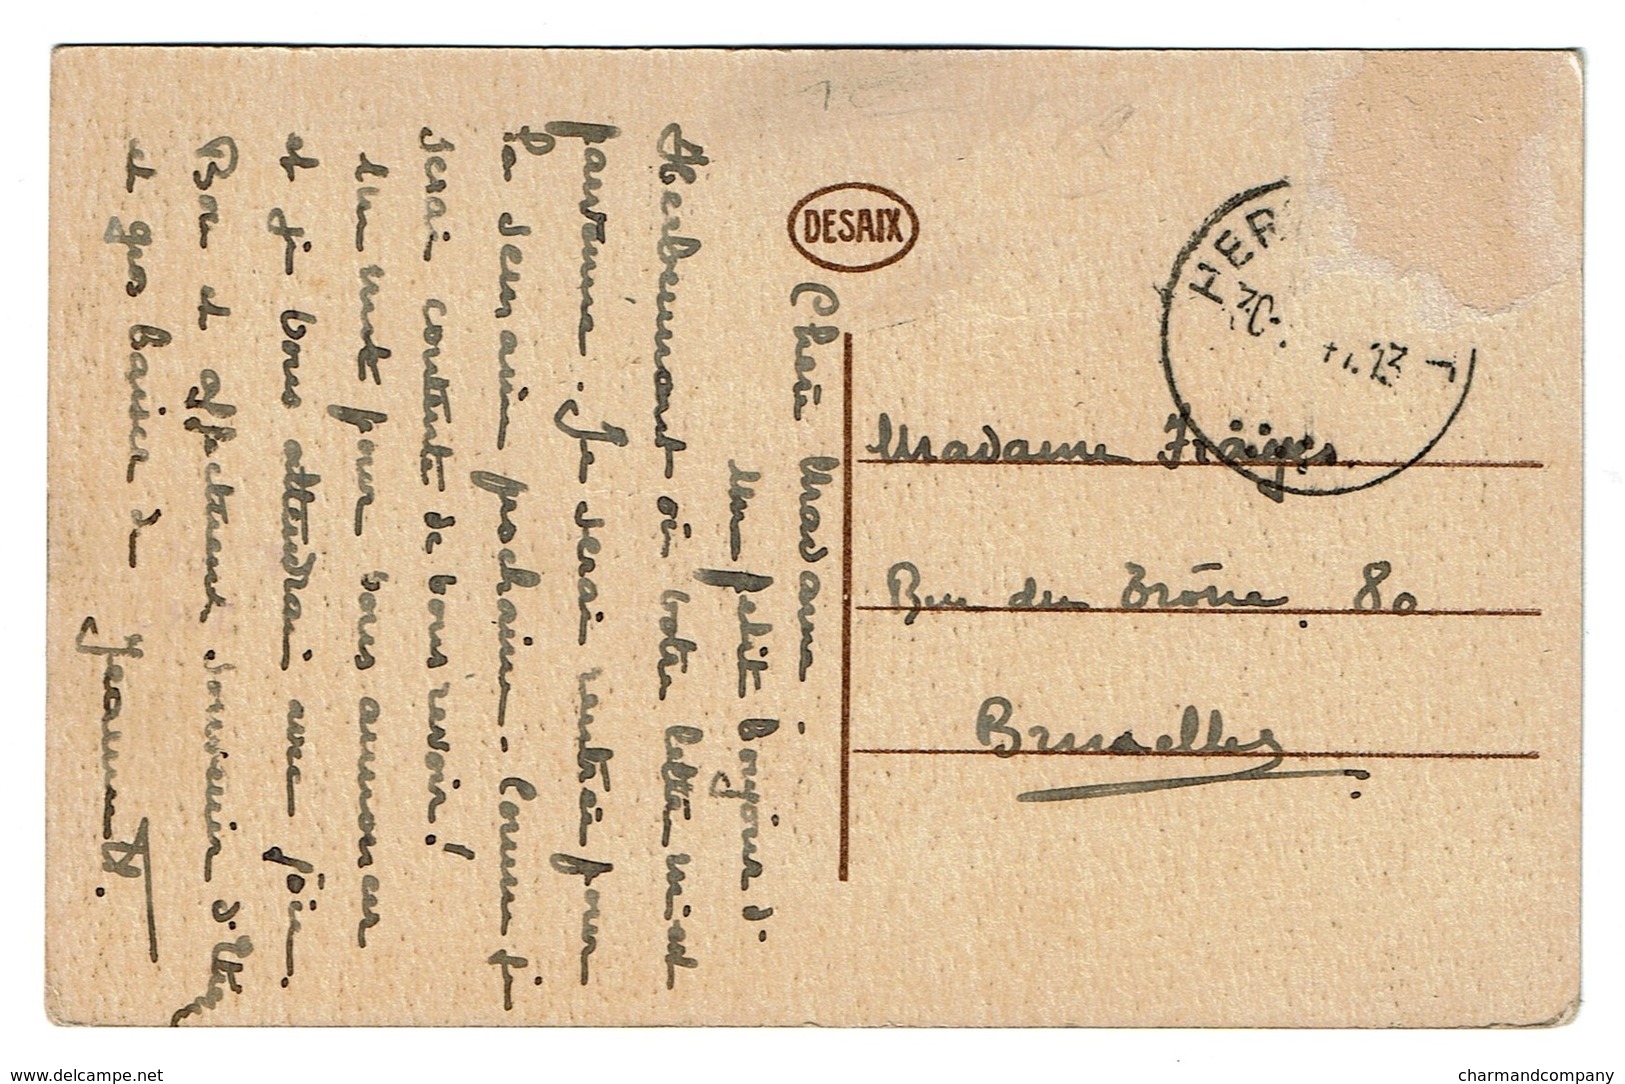 DESAIX
HER
30. 13
Chère Madame.
Un petit bonjour d'
Herbeumont où votre lettre m'est
parvenue. Je serai rentrée pour
la semaine prochaine. Comme je
serai contente de vous revoir!
Un mot pour vous annoncer
et je vous attendrai avec joie.
Bon et affectueux souvenir d'
et gros baiser de
Madame
Rue du Trône 80
Bruxelles
delcampe.net
charmandcompany